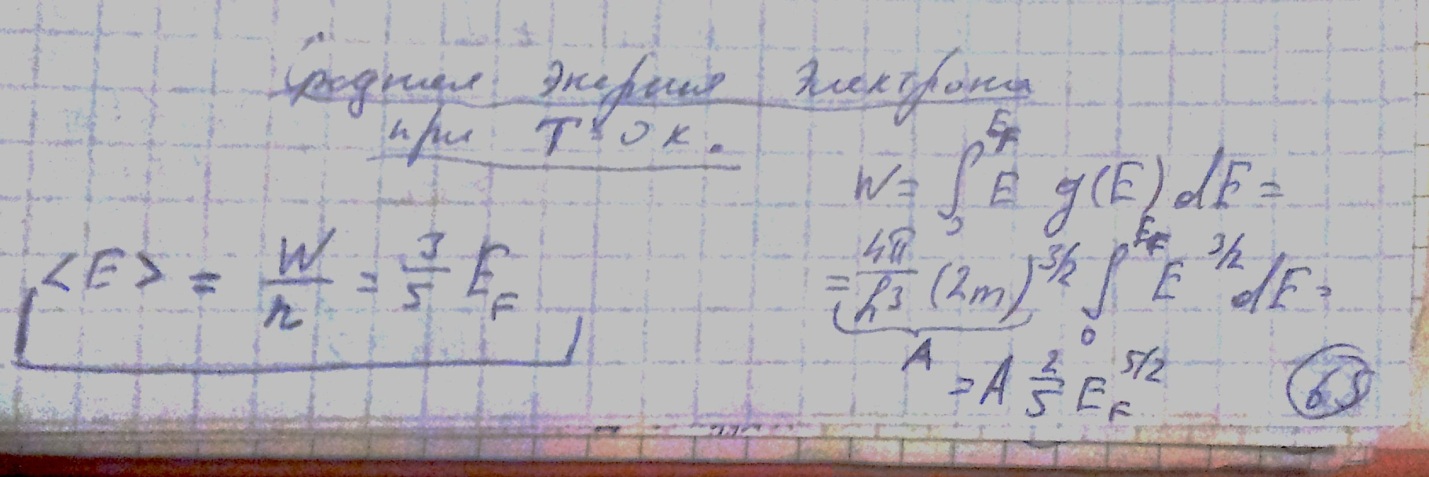 Средняя энергия электрона
при T=0 К.
W = ∫₀^{E_F} E g(E) dE =
= 4π/h³ (2m)^{3/2} ∫₀^{E_F} E^{3/2} dE =
A
= A 2/5 E_F^{5/2}
<E> = W/n = 3/5 E_F
65